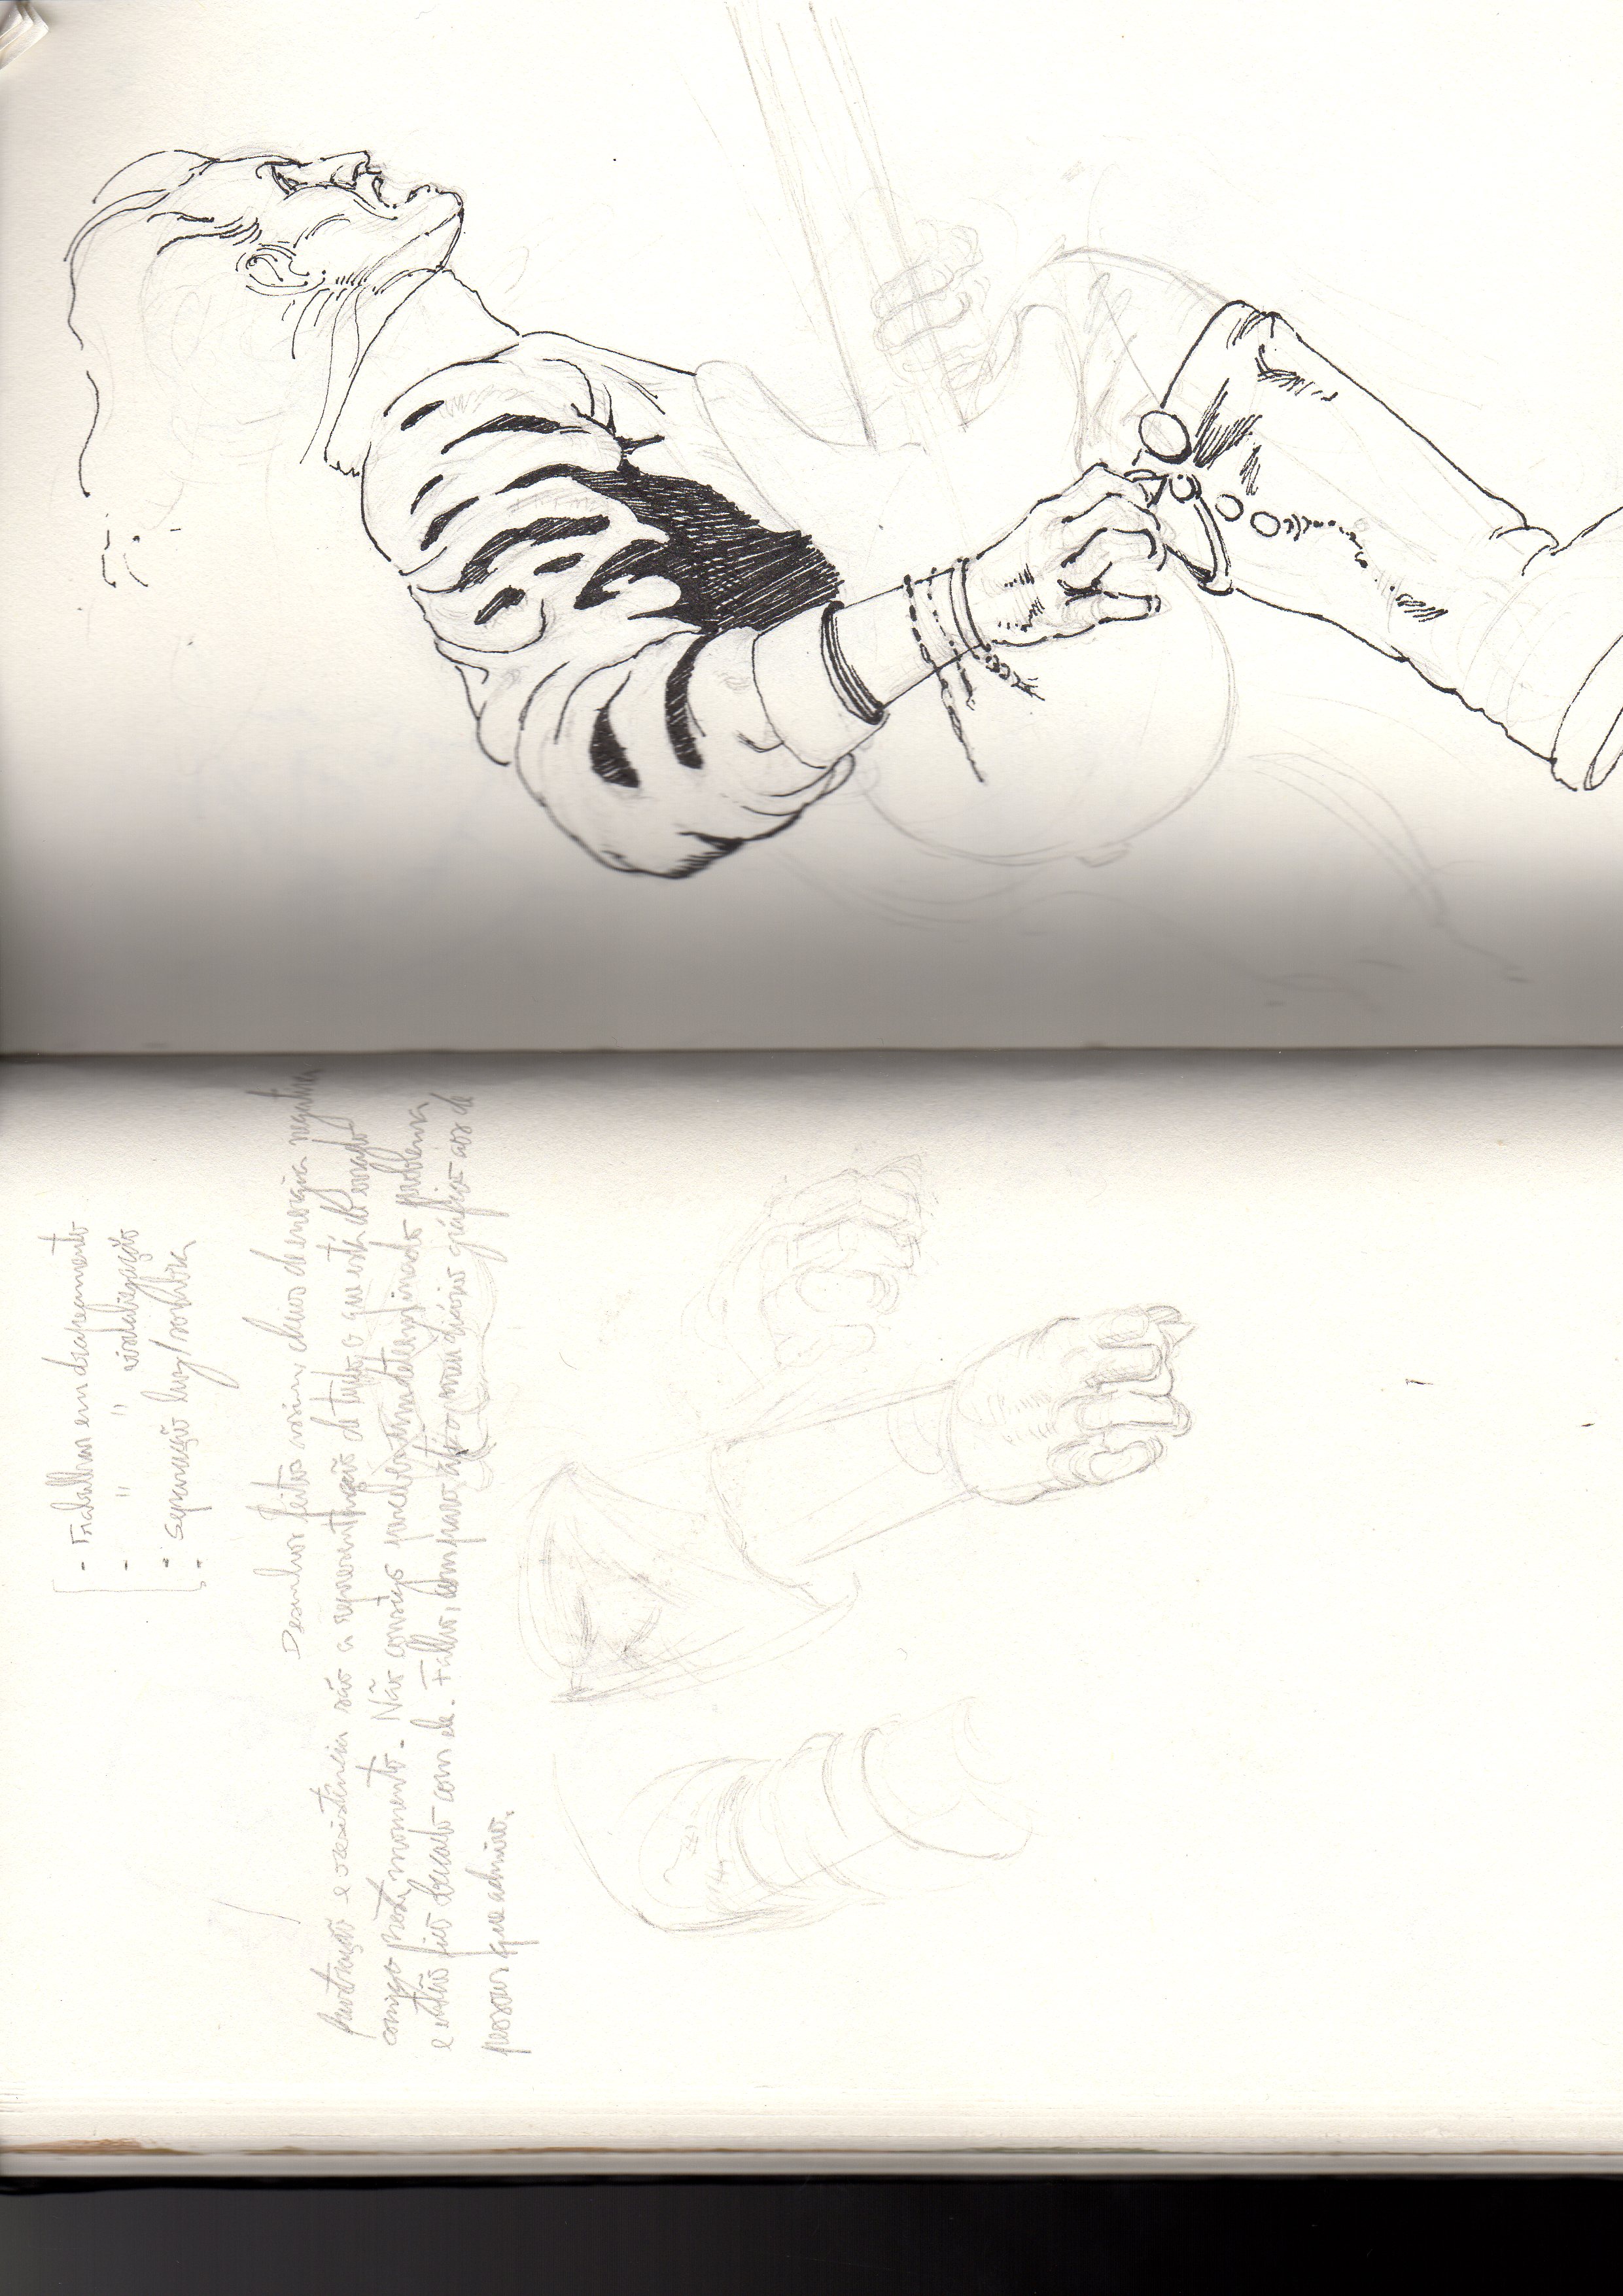 - Trabalhar em drapeamento
- " " visualização
- Separação luz/sombra
-
Desenhos feitos assim, cheios de energia negativa
frustração e resistência são a representação de tudo o que está de errado
comigo neste momento. Não consigo perceber um determinado problema
e então fico obcecado com ele. Falho, comparo até o meu diário gráfico aos de
pessoas que admiro.